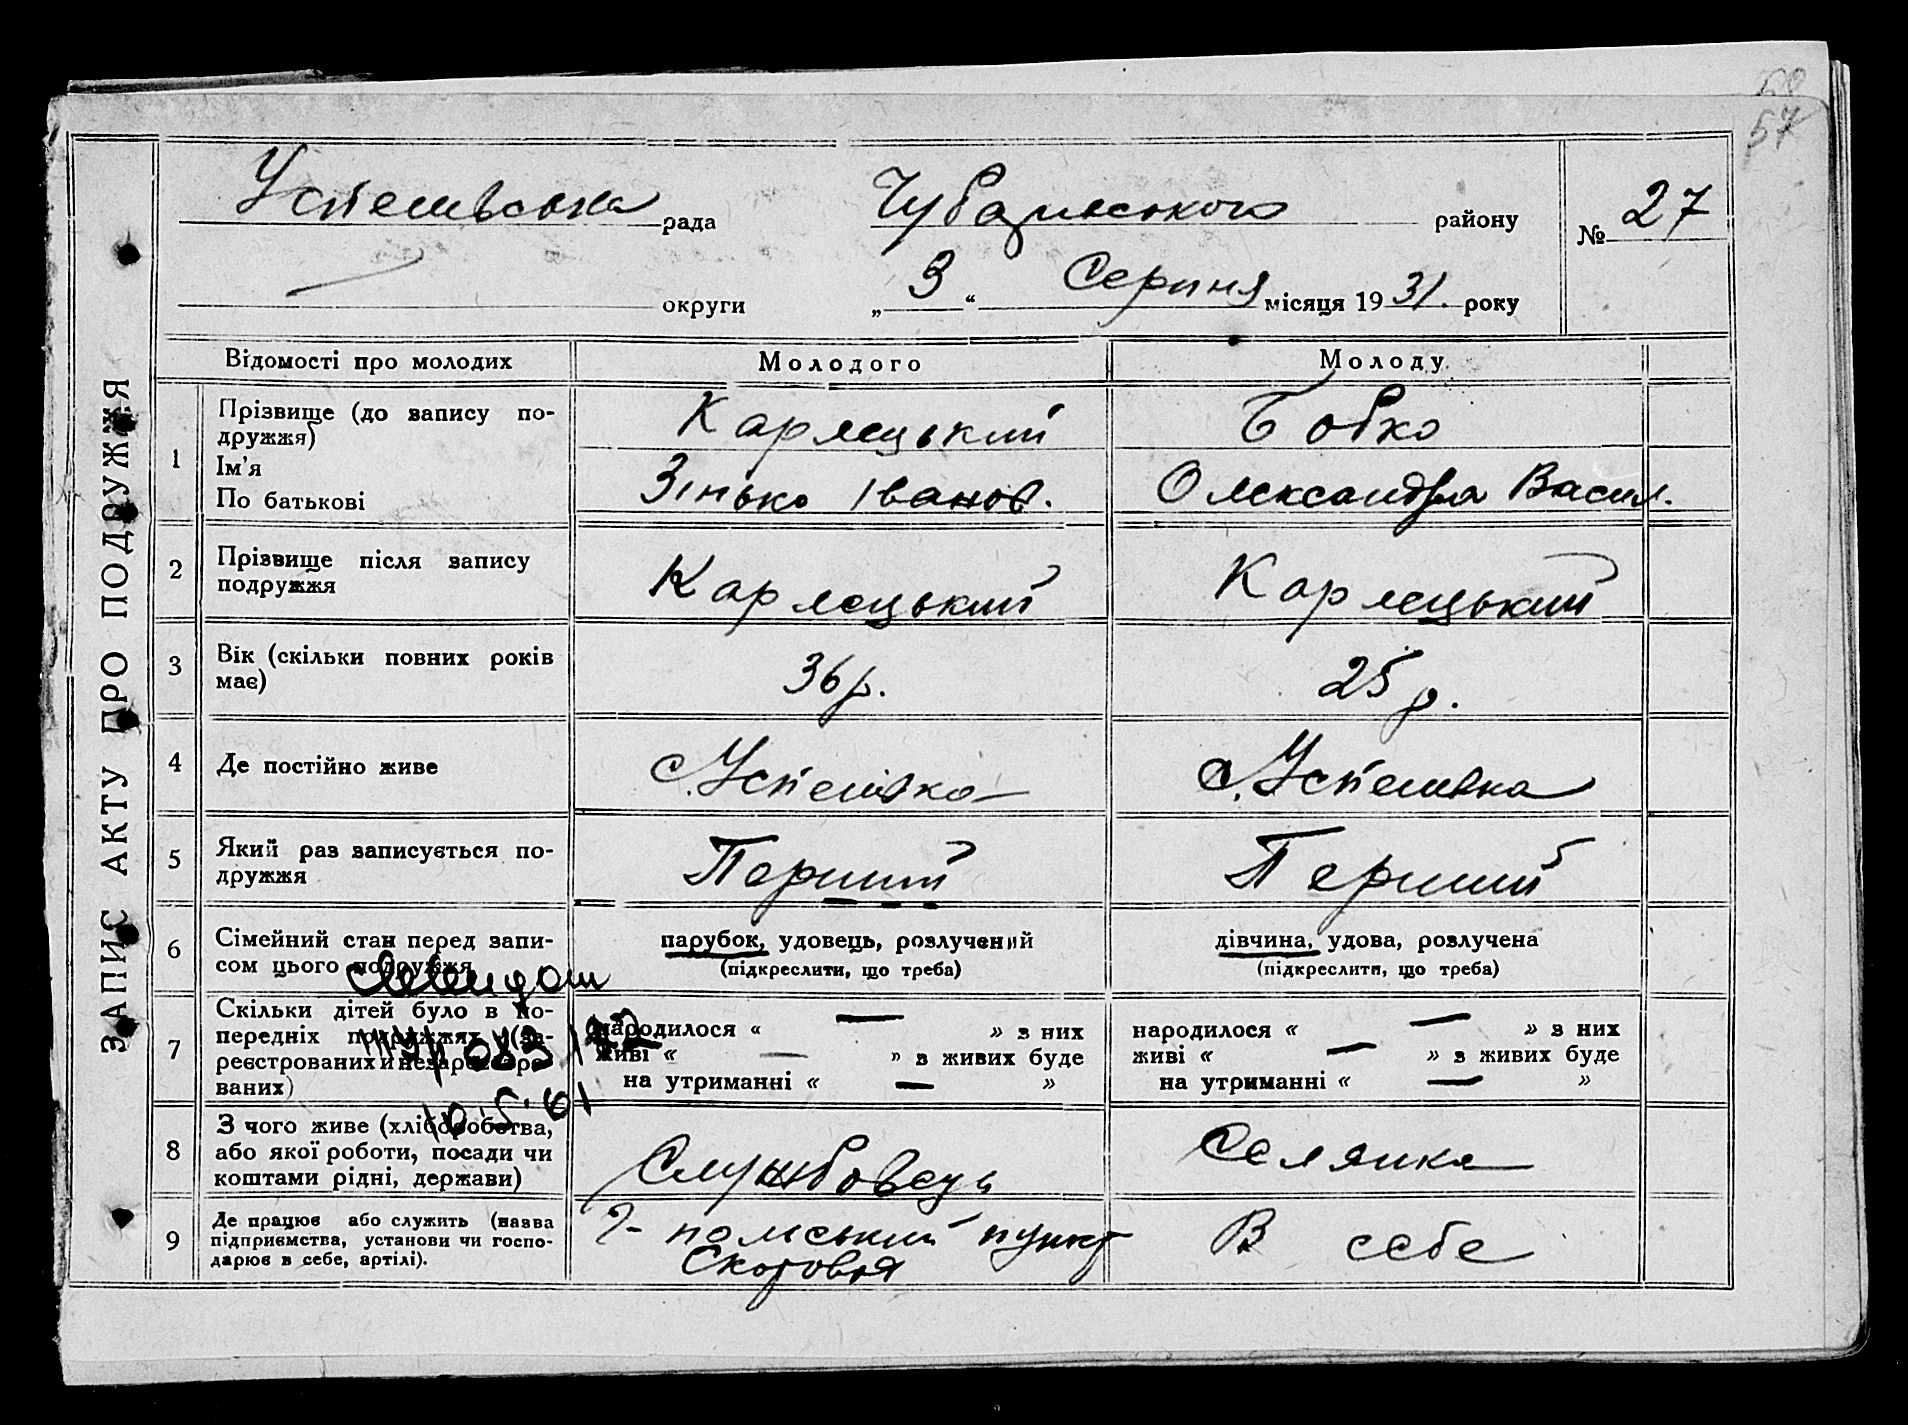 57
ЗАПИС АКТУ ПРО ПОДРУЖЖЯ
Успенівська рада Чубарівського району № 27
округи „ 3 “ Серпня місяця 19 31. року
Відомості про молодих Молодого Молоду
1 Прізвище (до запису по-
дружжя) Карлецький Бобко
Ім'я
По батькові Зінько Іванов. Олександра Васил.
2 Прізвище після запису
подружжя Карлецький Карлецький
3 Вік (скільки повних років
має) 36 р. 25 р.
4 Де постійно живе с. Успенівка с. Успенівка
5 Який раз записується по-
дружжя Перший Перший
6 Сімейний стан перед запи-
сом цього подружжя
парубок, удовець, розлучений дівчина, удова, розлучена
(підкреслити, що треба) (підкреслити, що треба)
7 Скільки дітей було в по-
передніх подружжях (за-
реєстрованих и незареєстро-
ваних)
народилося « — » з них народилося « — » з них
живі « — » з живих буде живі « — » з живих буде
на утриманні « — » на утриманні « — »
10.5.61
8 З чого живе (хліборобства,
або якої роботи, посади чи
коштами рідні, держави) Службовець Селянка
9 Де працює або служить (назва
підприємства, установи чи госпо-
дарює в себе, артілі).
пункт В себе